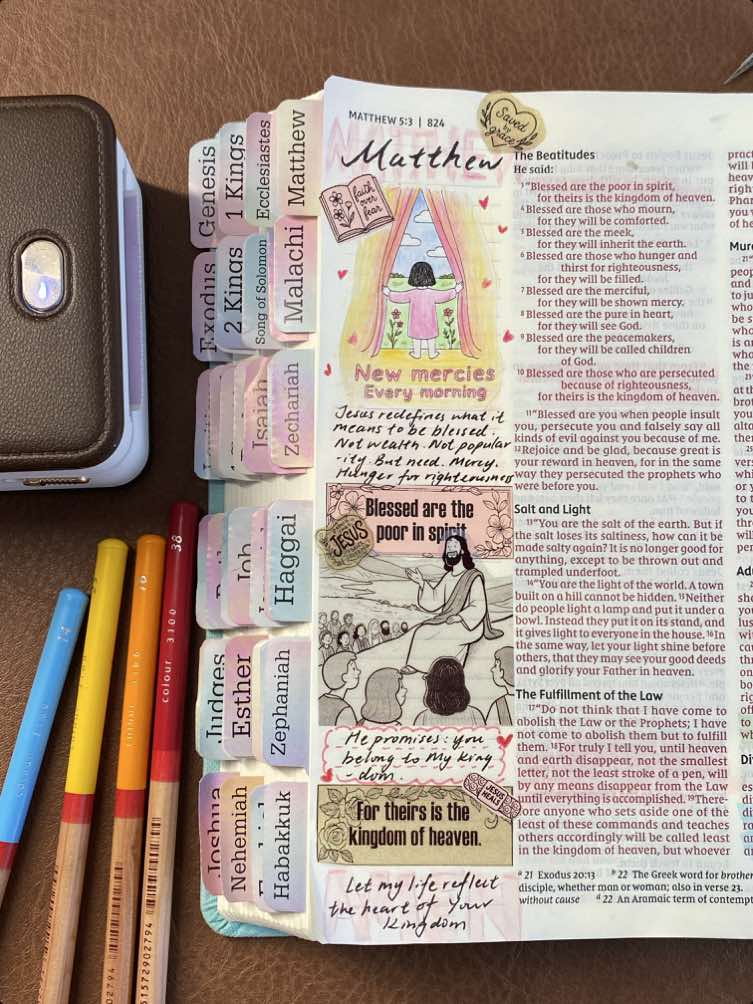 Genesis
1 Kings
Ecclesiastes
Matthew
Exodus
2 Kings
Song of Solomon
Malachi
Isaiah
Zechariah
Job
Haggai
Judges
Esther
Zephaniah
Joshua
Nehemiah
Habakkuk
MATTHEW 5:3 | 824
Matthew
faith
over
fear
New mercies
Every morning
Jesus redefines what it
means to be blessed.
Not wealth. Not popular
-ity. But need. Mercy.
Hunger for righteousness
Blessed are the
poor in spirit
JESUS
He promises: you
belong to My king
-dom.
JESUS
HEALS
For theirs is the
kingdom of heaven.
Let my life reflect
the heart of Your
Kingdom
Saved
by
grace
The Beatitudes
He said:
3 "Blessed are the poor in spirit,
for theirs is the kingdom of heaven.
4 Blessed are those who mourn,
for they will be comforted.
5 Blessed are the meek,
for they will inherit the earth.
6 Blessed are those who hunger and
thirst for righteousness,
for they will be filled.
7 Blessed are the merciful,
for they will be shown mercy.
8 Blessed are the pure in heart,
for they will see God.
9 Blessed are the peacemakers,
for they will be called children
of God.
10 Blessed are those who are persecuted
because of righteousness,
for theirs is the kingdom of heaven.
11 "Blessed are you when people insult
you, persecute you and falsely say all
kinds of evil against you because of me.
12 Rejoice and be glad, because great is
your reward in heaven, for in the same
way they persecuted the prophets who
were before you.
Salt and Light
13 "You are the salt of the earth. But if
the salt loses its saltiness, how can it be
made salty again? It is no longer good for
anything, except to be thrown out and
trampled underfoot.
14 "You are the light of the world. A town
built on a hill cannot be hidden. 15 Neither
do people light a lamp and put it under a
bowl. Instead they put it on its stand, and
it gives light to everyone in the house. 16 In
the same way, let your light shine before
others, that they may see your good deeds
and glorify your Father in heaven.
The Fulfillment of the Law
17 "Do not think that I have come to
abolish the Law or the Prophets; I have
not come to abolish them but to fulfill
them. 18 For truly I tell you, until heaven
and earth disappear, not the smallest
letter, not the least stroke of a pen, will
by any means disappear from the Law
until everything is accomplished. 19 There-
ore anyone who sets aside one of the
least of these commands and teaches
others accordingly will be called least
in the kingdom of heaven, but whoever
a 21 Exodus 20:13 b 22 The Greek word for brother
disciple, whether man or woman; also in verse 23.
without cause d 22 An Aramaic term of contempt
colour 3100 38